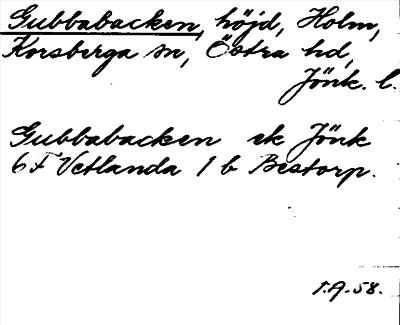 Gubbabacken, höjd, Holm,
Korsberga sn, Östra hd,
Jönk. l.
Gubbabacken ek Jönk
6F Vetlanda 1 b Bestorp.
T.A.58.